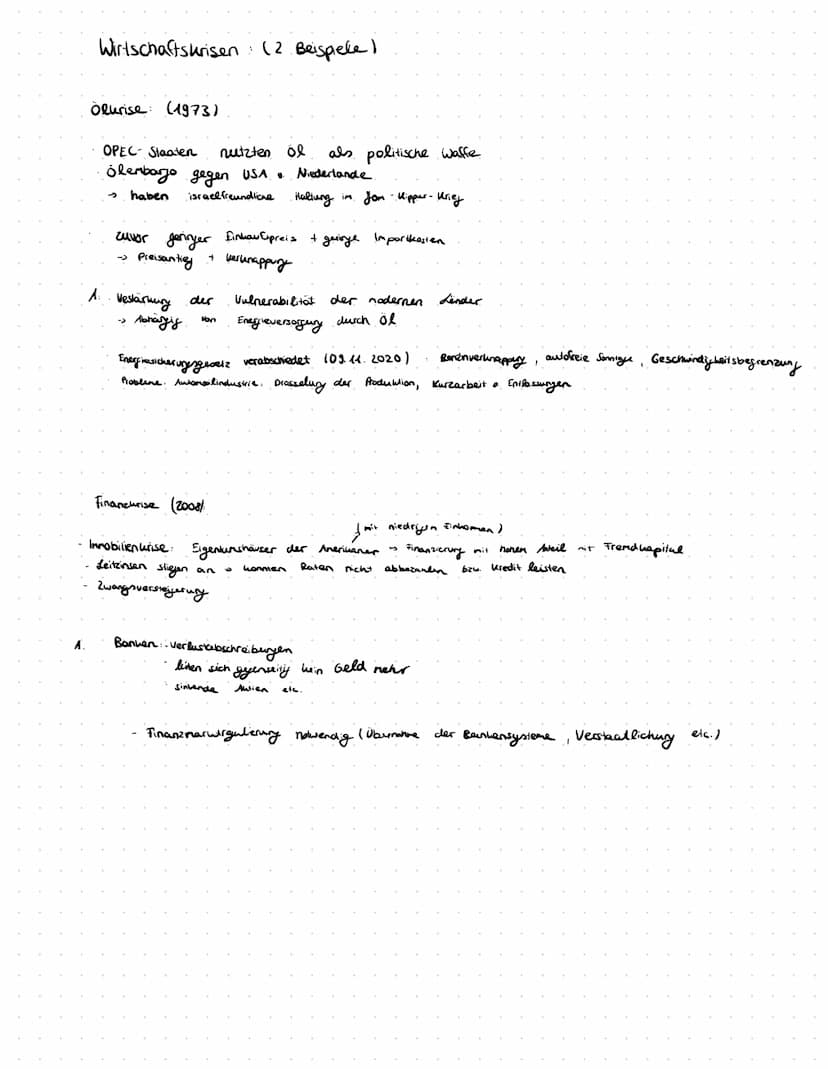 Wirtschaftskrisen : (2 Beispiele)
Ölkrise: (1973)
· OPEC-Staaten nutzten Öl als politische Waffe
· Ölembargo gegen USA + Niederlande
→ haben israelfreundliche Haltung im Jom-Kippur-Krieg
zuvor geringer Einkaufspreis + geringe Importkosten
→ Preisanstieg + Verknappung
1. Verstärkung der Vulnerabilität der modernen Länder
→ Abhängig von Energieversorgung durch Öl
· Energiesicherungsgesetz verabschiedet (09.11.2020) · Benzinverknappung, autofreie Sonntage, Geschwindigkeitsbegrenzung
· Probleme: Automobilindustrie: Drosselung der Produktion, Kurzarbeit + Entlassungen
Finanzkrise (2008)
(mit niedrigem Einkommen)
- Immobilienkrise: Eigentumshäuser der Amerikaner → Finanzierung mit hohem Anteil mit Fremdkapital
- Leitzinsen stiegen an → konnten Raten nicht abbezahlen bzw. Kredit leisten
- Zwangsversteigerung
1. Banken: · Verlustabschreibungen
· liehen sich gegenseitig kein Geld mehr
· sinkende Aktien etc.
- Finanzmarktregulierung notwendig (Übernahme der Bankensysteme, Verstaatlichung etc.)